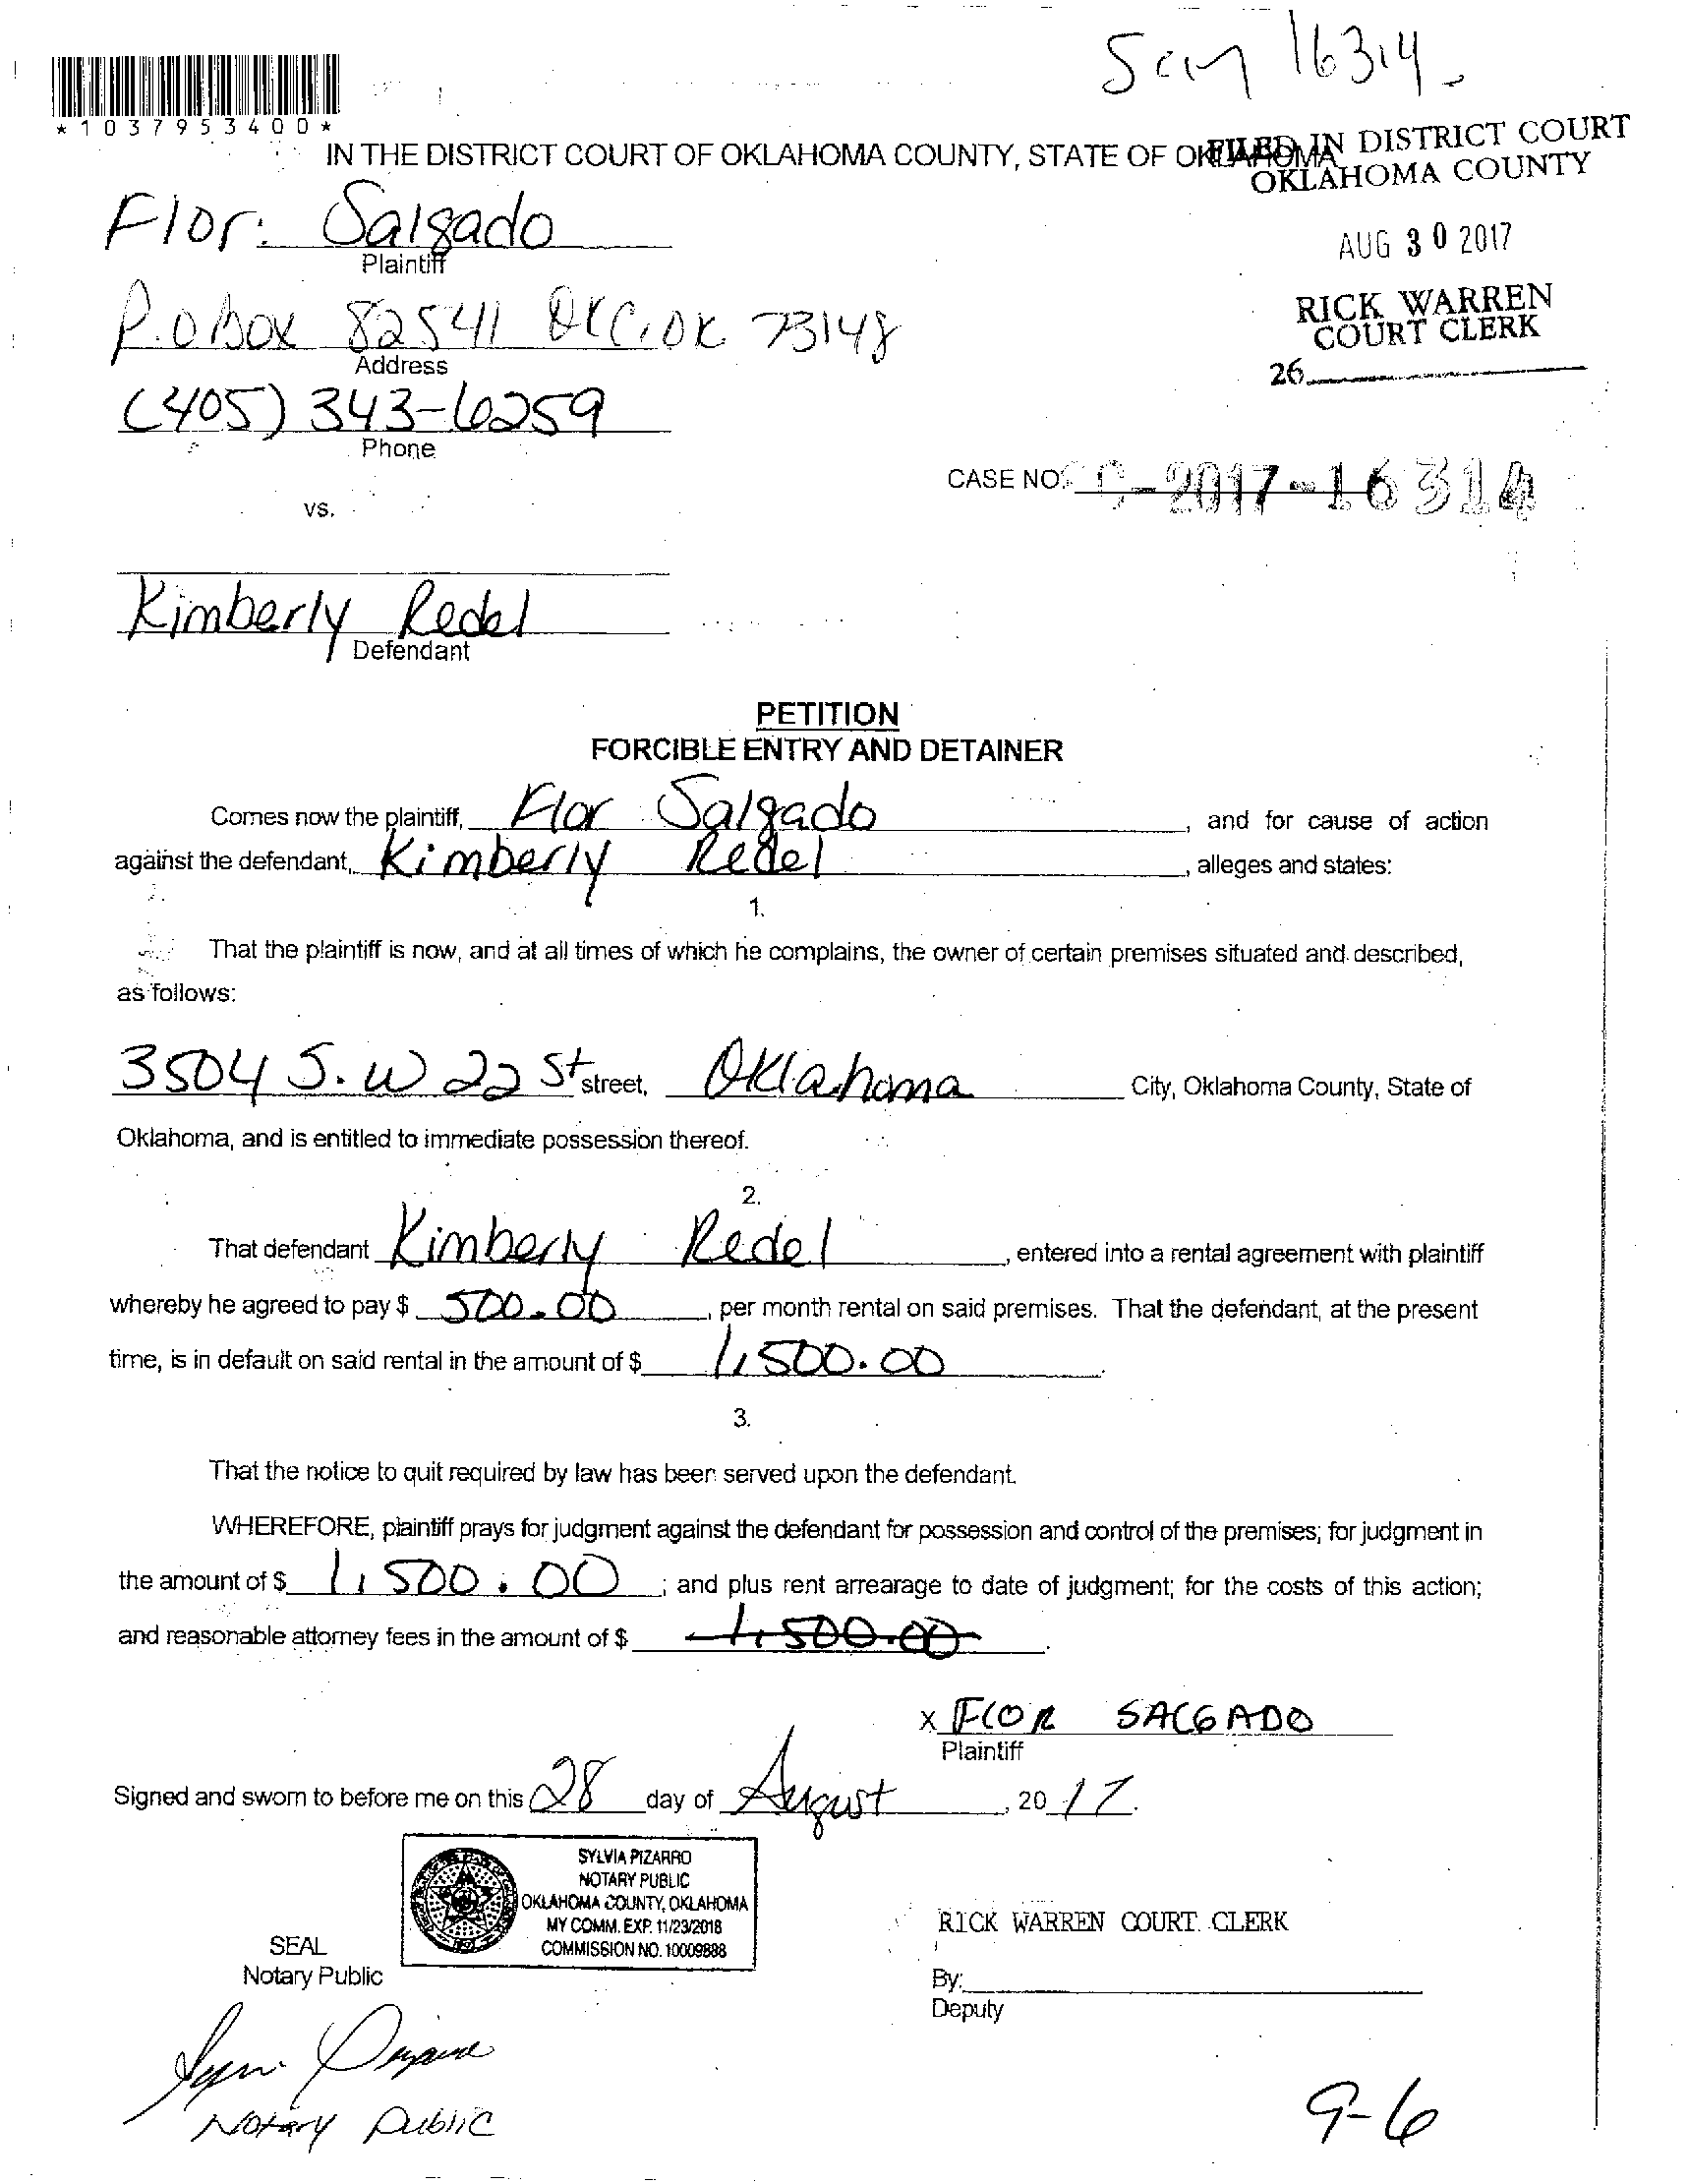 16314
*1037953400*
IN THE DISTRICT COURT OF OKLAHOMA COUNTY, STATE OF OKLAHOMA
FILED IN DISTRICT COURT
OKLAHOMA COUNTY
Flor Salgado
Plaintiff
AUG 30 2017
P.O Box 82541 OKC, OK 73148
Address
RICK WARREN
COURT CLERK
26
(405) 343-6259
Phone
CASE NO. C-2017-16314
vs.
Kimberly Redel
Defendant
PETITION
FORCIBLE ENTRY AND DETAINER
Comes now the plaintiff, Flor Salgado, and for cause of action
against the defendant, Kimberly Redel, alleges and states:
1.
That the plaintiff is now, and at all times of which he complains, the owner of certain premises situated and described,
as follows:
3504 S.W 22 St street, Oklahoma City, Oklahoma County, State of
Oklahoma, and is entitled to immediate possession thereof.
2.
That defendant Kimberly Redel, entered into a rental agreement with plaintiff
whereby he agreed to pay $ 500.00, per month rental on said premises. That the defendant, at the present
time, is in default on said rental in the amount of $ 1,500.00.
3.
That the notice to quit required by law has been served upon the defendant.
WHEREFORE, plaintiff prays for judgment against the defendant for possession and control of the premises; for judgment in
the amount of $ 1,500.00; and plus rent arrearage to date of judgment; for the costs of this action;
and reasonable attorney fees in the amount of $ 1,500.00.
X FLOR SALGADO
Plaintiff
Signed and sworn to before me on this 28 day of August, 2017.
SYLVIA PIZARRO
NOTARY PUBLIC
OKLAHOMA COUNTY, OKLAHOMA
MY COMM. EXP. 11/23/2018
COMMISSION NO. 10009888
SEAL
Notary Public
RICK WARREN COURT CLERK
By:
Deputy
Notary Public
9-6